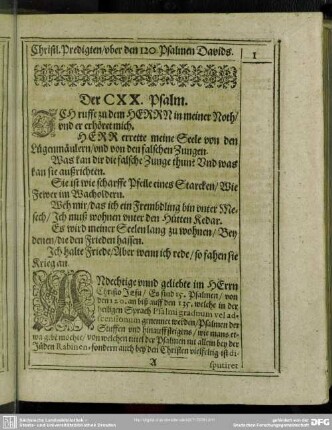 Christl. Predigten/ vber den 120 Psalmen Davids.
1
Der CXX. Psalm.
ICH ruffe zu dem HERRN in meiner Noth/
vnd er erhöret mich.
HERR errette meine Seele von den
Lügenmäulern/ vnd von den falschen Zungen.
Was kan dir die falsche Zunge thun? Vnd was
kan sie außrichten.
Sie ist wie scharffe Pfeile eines Starcken/ Wie
Fewer im Wacholdern.
Weh mir/ das ich ein Frembdling bin vnter Me-
sech/ Ich muß wohnen vnter den Hütten Kedar.
Es wird meiner Seelen lang zu wohnen/ Bey
denen/ die den Frieden hassen.
Ich halte Friede/ Aber wenn ich rede/ so fahen sie
Krieg an.
ANdechtige vnnd geliebte im HErrn
Christo Jesu/ Es sind 15. Psalmen/ von
den 120. an biß auff den 135. welche in der
heiligen Sprach Psalmi graduum vel ad
scensionum genennet werden/ Psalmen der
Stuffen vnd hinauffsteigens/ wie mans et-
wa geben möchte/ von welchen titel der Psalmen nit allein bey der
Jüden Rabinen/ sondern auch bey den Christen vielfeltig ist di-
A
sputiret